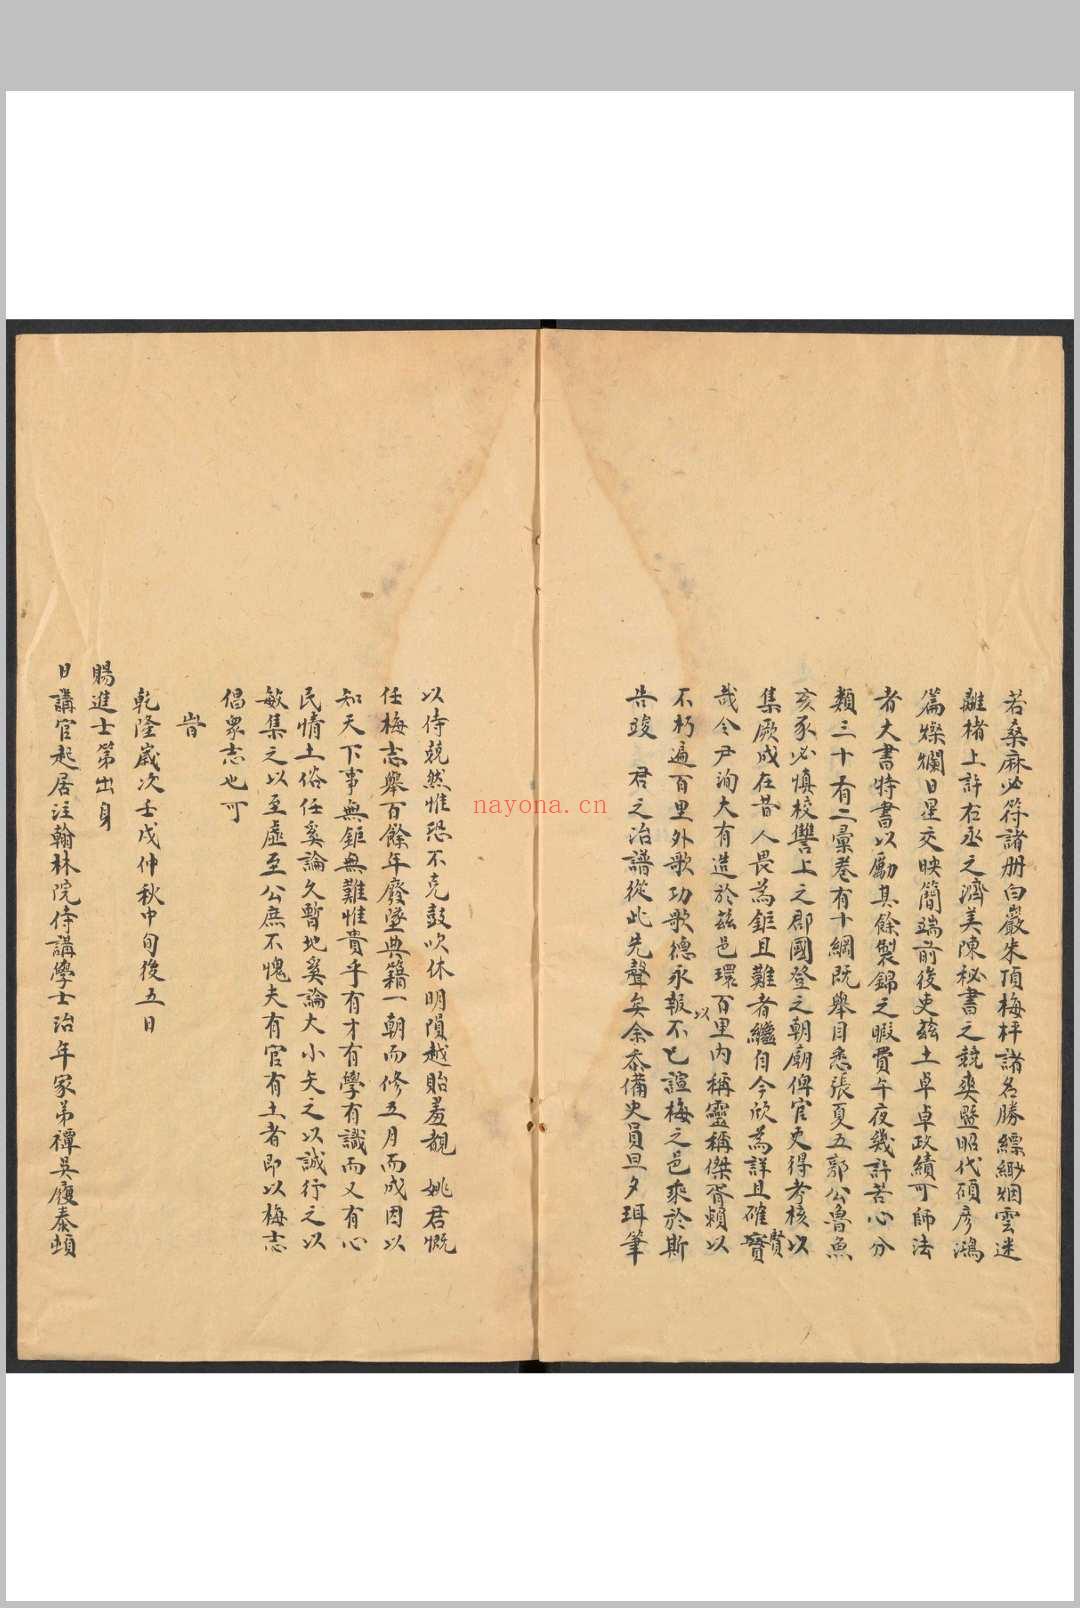 若桑麻必符諸册白巖朱頂梅枰諸名勝縹緲烟雲迷
離楮上許右丞之濟美陳秘書之競爽暨昭代碩彥鴻
篇燦爛日星交映簡端前後吏兹土卓卓政績可師法
者大書特書以勵其餘製錦之暇費午夜幾許苦心分
類三十有二彙卷有十綱既舉目悉張夏五郭公魯魚
亥豕必慎校讐上之郡國登之朝廟俾官吏得考核以
集厥成在昔人畏為鉅且難者繼自今欣為詳且確寳
賢
哉令尹洵大有造於兹邑環百里内稱靈稱傑胥賴以
以
不朽遍百里外歌功歌德永報不匕諠梅之邑乘於斯
告竣 君之治譜從此先聲矣余忝備史員旦夕珥筆
以侍兢然惟恐不克鼓吹休明隕越貽羞覩 姚君慨
任梅志舉百餘年廢墜典籍一朝而修五月而成因以
知天下事無鉅無難惟貴乎有才有學有識而又有心
民情土俗任奚論久暫地奚論大小矢之以誠行之以
敏集之以至虛至公庶不愧夫有官有土者即以梅志
倡衆志也可
旹
乾隆嵗次壬戌仲秋中旬後五日
賜進士第出身
日講官起居注翰林院侍講學士治年家弟禫吳履泰頓
nayona.cn